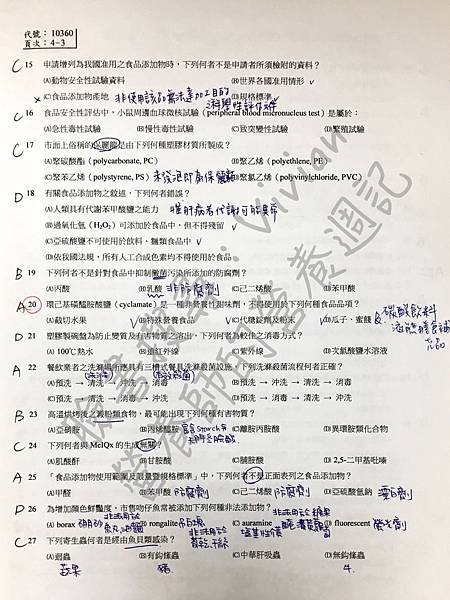 代號：10360
頁次：4-3
C 15 申請增列為我國准用之食品添加物時，下列何者不是申請者所須檢附的資料？
(A)動物安全性試驗資料 (B)世界各國准用情形 ✓
×(C)食品添加物產地 (D)規格標準 ✓
C 16 食品安全性評估中，小鼠周邊血球微核試驗（peripheral blood micronucleus test）是屬於：
(A)急性毒性試驗 (B)慢性毒性試驗 (C)致突變性試驗 (D)繁殖試驗
C 17 市面上俗稱的保麗龍是由下列何種塑膠材質所製成？
(A)聚碳酸酯（polycarbonate, PC） (B)聚乙烯（polyethylene, PE）
(C)聚苯乙烯（polystyrene, PS） (D)聚氯乙烯（polyvinylchloride, PVC）
D 18 有關食品添加物之敘述，下列何者錯誤？
(A)人類具有代謝苯甲酸鹽之能力
(B)過氧化氫（H2O2）可添加於食品中，但不得殘留 ✓
(C)亞硫酸鹽不可使用於飲料、麵類食品中 ✓
(D)依我國法規，所有人工合成色素均不得使用於食品
B 19 下列何者不是針對食品中抑制黴菌污染所添加的防腐劑？
(A)丙酸 (B)乳酸 非防腐劑 (C)己二烯酸 (D)苯甲酸
A 20 環己基磺醯胺酸鹽（cyclamate）是一種非營養性甜味劑，不得使用於下列何種食品品項？
(A)截切水果 (B)特殊營養食品 (C)代糖錠劑及粉末 (D)瓜子、蜜餞 & 碳酸飲料
D 21 塑膠製碗盤為防止變質及有害物質之溶出，下列何者為較佳之消毒方式？
(A) 100℃熱水 (B)遠紅外線 (C)紫外線 (D)次氯酸鹽水溶液
A 22 餐飲業者之洗滌場所應具有三槽式餐具洗滌殺菌設施，下列洗滌殺菌流程何者正確？
(A)預洗 → 清洗 → 沖洗 → 消毒 (B)預洗 → 沖洗 → 清洗 → 消毒
(C)預洗 → 清洗 → 消毒 → 沖洗 (D)預洗 → 消毒 → 清洗 → 沖洗
B 23 高溫烘烤後之澱粉類食物，最可能出現下列何種有害物質？
(A)亞硝胺 (B)丙烯醯胺 (C)離胺丙胺酸 (D)異環胺類化合物
C 24 下列何者與 MeIQx 的生成無關？
(A)肌酸酐 (B)甘胺酸 (C)脯胺酸 (D) 2,5-二甲基吡嗪
A 25 「食品添加物使用範圍及限量暨規格標準」中，下列何者不是正面表列之食品添加物？
(A)甲醛 (B)苯甲酸 防腐劑 (C)己二烯酸 防腐劑 (D)亞硫酸氫鈉 漂白劑
D 26 為增加顏色鮮豔度，市售吻仔魚常被添加下列何種非法添加物？
(A) borax (B) rongalite (C) auramine (D) fluorescent 螢光劑
C 27 下列寄生蟲何者是經由魚貝類感染？
(A)蛔蟲 (B)有鉤絛蟲 (C)中華肝吸蟲 (D)無鉤絛蟲
蔬果 豬 牛